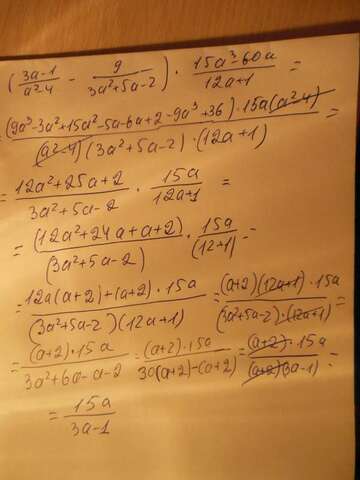 (3a-1/a²-4 - 9/3a²+5a-2) · 15a³-60a/12a+1 =
(9a³-3a²+15a²-5a-6a+2-9a³+36) · 15a(a²-4)/(a²-4)(3a²+5a-2)·(12a+1) =
= 12a²+25a+2/3a²+5a-2 · 15a/12a+1 =
= (12a²+24a+a+2)/(3a²+5a-2) · 15a/(12+1) =
= 12a(a+2)+(a+2)·15a/(3a²+5a-2)(12a+1) = (a+2)(12a+1)·15a/(3a²+5a-2)·(12a+1) =
= (a+2)·15a/3a²+6a-a-2 = (a+2)·15a/3a(a+2)-(a+2) = (a+2)·15a/(a+2)(3a-1) =
= 15a/3a-1